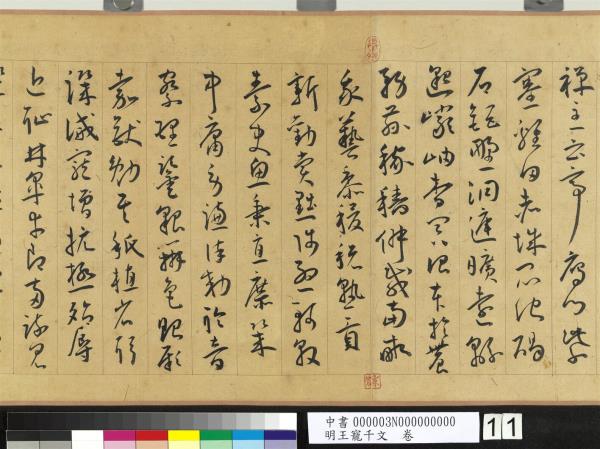 禪主云亭雁門紫
塞雞田赤城昆池碣
石鉅野洞庭曠遠綿
邈巖岫杳冥治本於農
務茲稼穡俶載南畝
我藝黍稷稅熟貢
新勸賞黜陟孟軻敦
素史魚秉直庶幾
中庸勞謙謹敕聆音
察理鑒貌辨色貽厥
嘉猷勉其祗植省躬
譏誡寵增抗極殆辱
近恥林皋幸即兩疏見
中書 000003N000000000
明王寵千文 卷
11